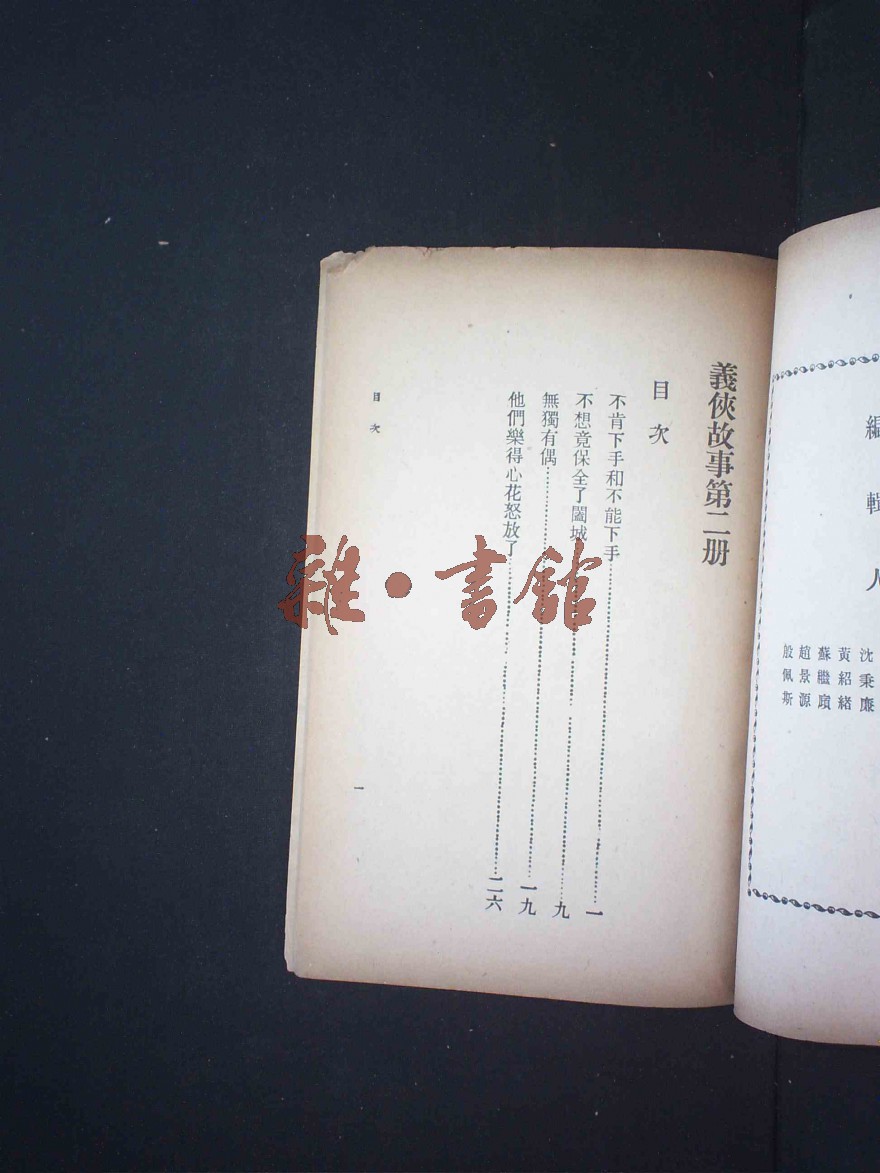 編輯人
沈秉廉
黃紹緒
蘇繼廎
趙景源
殷佩斯
義俠故事第二册
目次
不肯下手和不能下手……一
不想竟保全了闔城……九
無獨有偶……一九
他們樂得心花怒放了……二六
目次
一
雜·書館